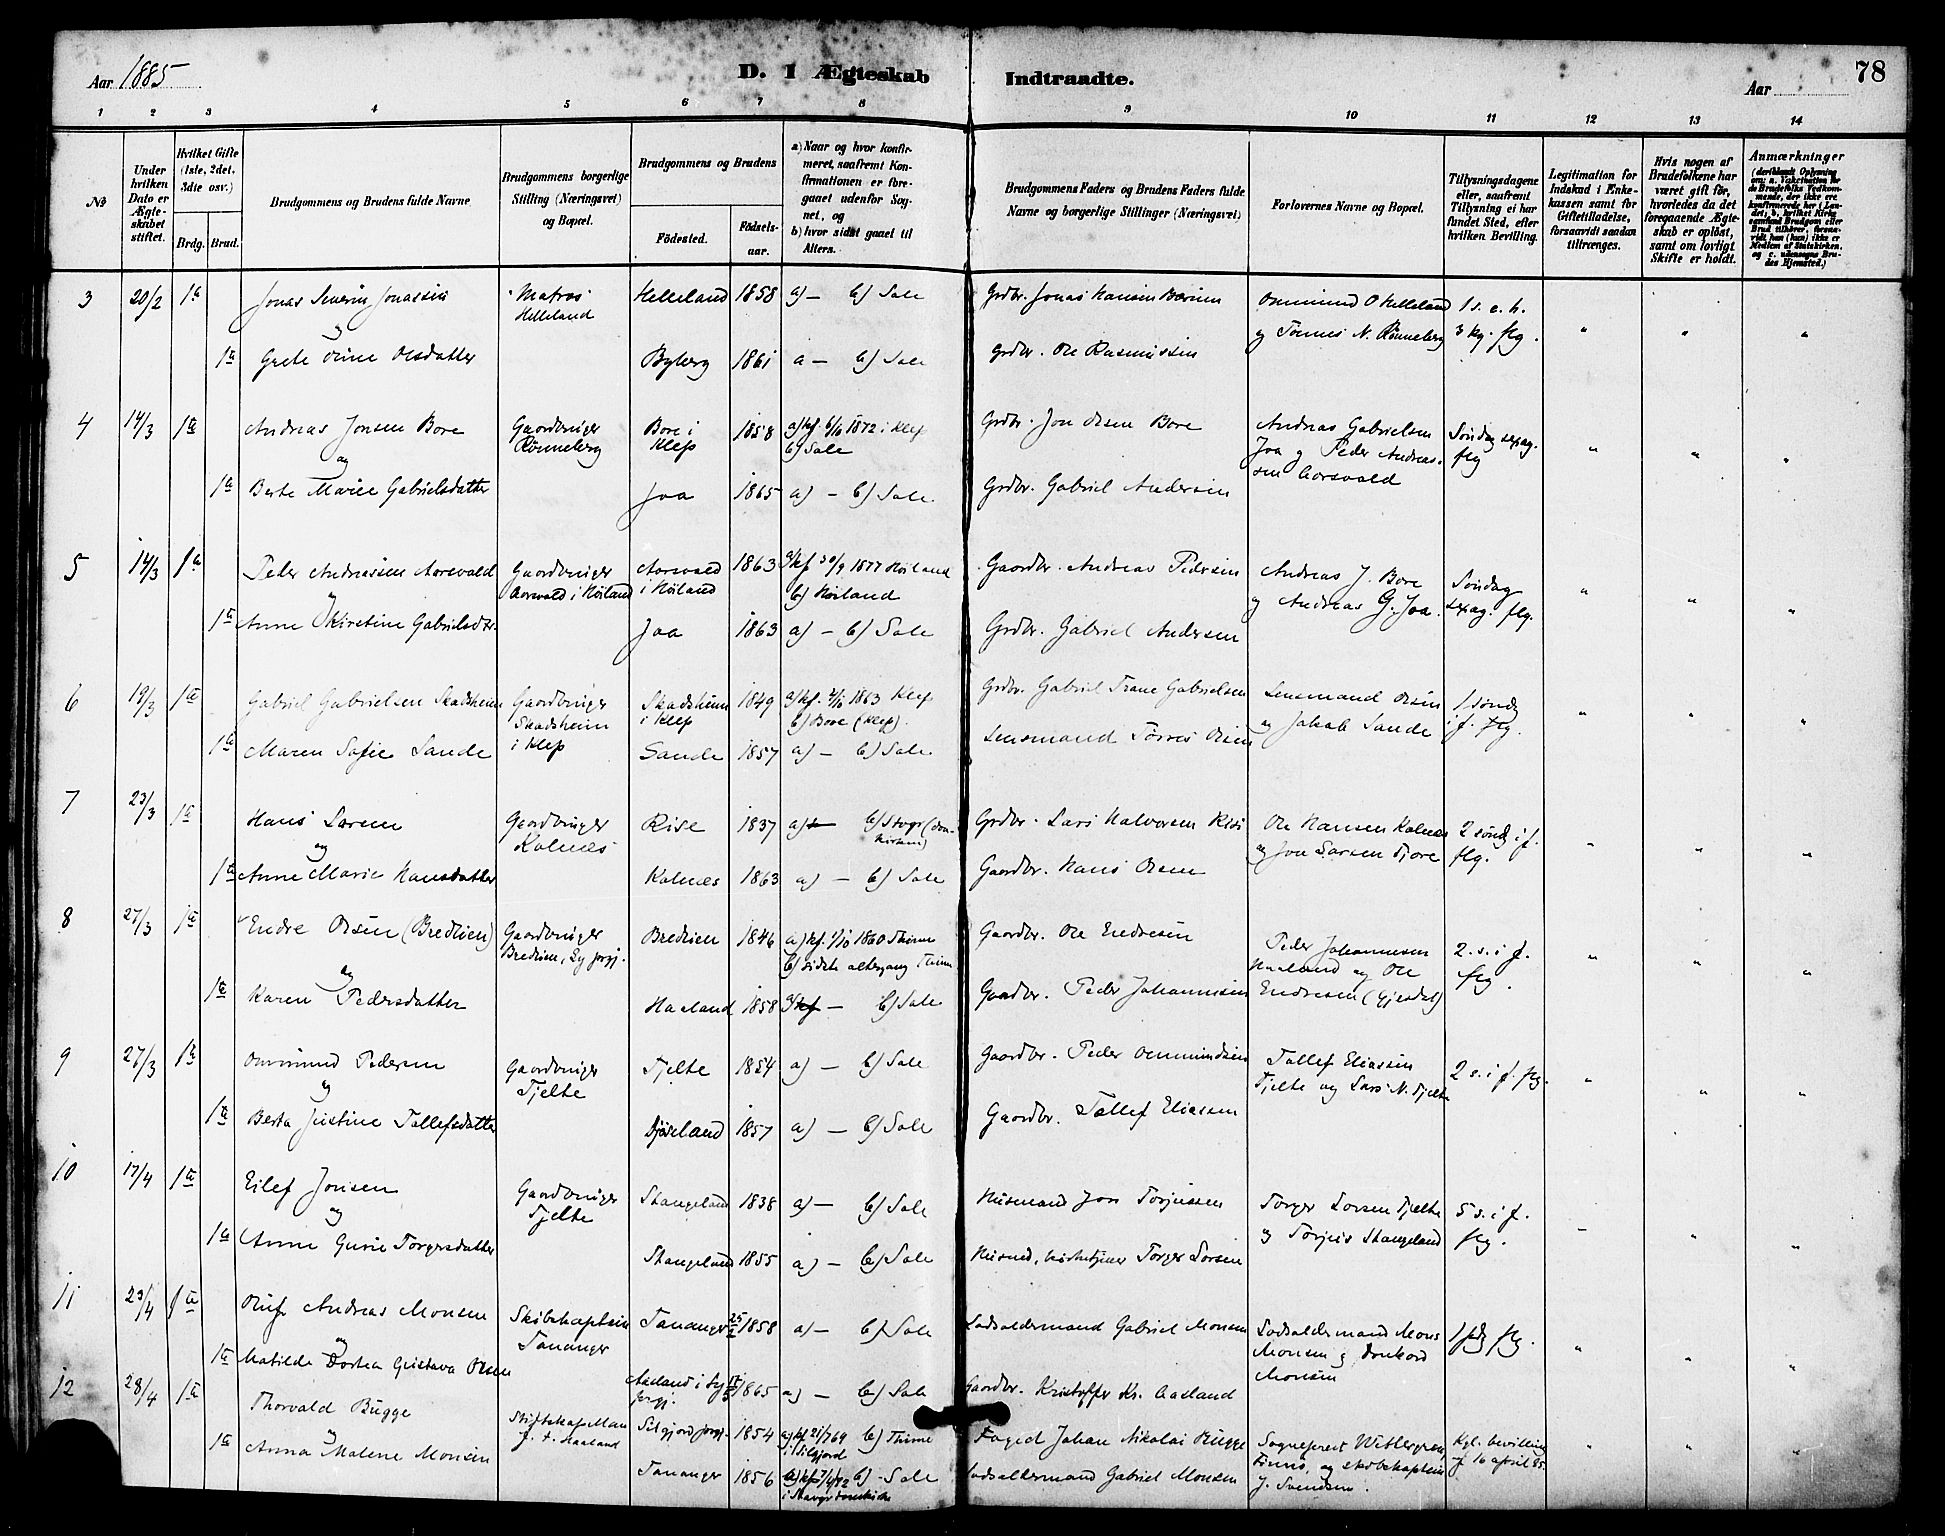 Aar 1885
D. 1 Ægteskab Indtraadte.
78
Aar
1 2 3 4 5 6 7 8 9 10 11 12 13 14
№
Under hvilken Dato er Ægteskabet stiftet.
Hvilket Gifte (1ste, 2det, 3die osv.)
Brdg. Brud.
Brudgommens og Brudens fulde Navne
Brudgommens borgerlige Stilling (Næringsvei) og Bopæl.
Brudgommens og Brudens
Fødested.
Fødselsaar.
a) Naar og hvor konfirmeret, saafremt Konfirmationen er foregaaet udenfor Sognet, og
b) hvor sidst gaaet til Alters.
Brudgommens Faders og Brudens Faders fulde Navne og borgerlige Stillinger (Næringsvei)
Forlovernes Navne og Bopæl.
Tillysningsdagene eller, saafremt Tillysning ei har fundet Sted, efter hvilken Bevilling.
Legitimation for Indskud i Enkekassen samt for Giftetilladelse, forsaavidt saadan tiltrænges.
Hvis nogen af Brudefolkene har været gift før, hvorledes da det foregaaende Ægteskab er opløst, samt om lovligt Skifte er holdt.
Anmærkninger
3 20/2 1ste Jonas Severin Jonassen Matros Helleland Helleland 1858 a) — b) Sole Grdbr. Jonas Hansen Ommund O Helleland 1 s. e. h.
og
og Tønnes N. Rønneberg 3 kg. flg.
1ste Grete Oline Olsdatter Byberg 1861 a — b) Sole Grdbr. Ole Rasmussen
4 14/3 1ste Andreas Jonsen Bore Gaardbruger Rønneberg Bore i Klep 1858 a) kf. 6/10 1872 i Klep b) Sole Grdbr. Jon Olsen Bore Andreas Gabrielsen Søndag sexag. flg
og
Joa og Peder Andreassen Aarsvald
1ste Berte Marie Gabrielsdatter Joa 1865 a) — b) Sole. Grdbr. Gabriel Andersen
5 14/3 1ste Peder Andreassen Aarsvald Gaardbruger Aarsvald i Høiland Aarsvald i Høiland 1863 a) kf 30/9 1877 Høiland b) Høiland Gaardbr. Andreas Pedersen Andreas J. Bore og Andreas G. Joa. Søndag sexag. flg.
og
1ste Anne Kirstine Gabrielsdtr. Joa 1863 a) — b) Sole Grdbr. Gabriel Andersen
6 19/3 1ste Gabriel Gabrielsen Skadsheim Gaardbruger Skadsheim i Klep Skadsheim i Klep 1849 a) kf. 1863 Klep b) Bore (Klep). Grdbr. Gabriel Trane Gabrielsen Lensmand Olsen og Jakob Sande 1 sønd i f. flg.
1ste Maren Sofie Sande Sande 1857 a) — b) Sole. Lensmand Tørres Olsen
7 23/3 1ste Hans Larsen Gaardbruger Kolnes Rise 1837 a) — b) Stvgr (Domkirken) Grdbr. Lars Halvorsen Risi Ole Hansen Kolnes og Jon Larsen Fjore 2 sønd i f. flg.
og
1ste Anne Marie Hansdatter Kolnes 1863 a) — b) Sole Gaardbr. Hans Olsen
8 27/3 1ste Endre Olsen (Bredlien) Gaardbruger Bredlien, Ly prgj. Bredlien 1846 a) kf. 1/10 1860 Thime b) sidste altergang Thime Gaardbr. Ole Endresen Peder Johannesen Haaland og Ole Endresen (Gjesdal) 2. s. i f. flg.
og
1ste Karen Pedersdatter Haaland 1858 a) — b) Sole Gaardbr. Peder Johannesen
9 27/3 1ste Ommund Pedersen Gaardbruger Tjelte Tjelte 1854 a) — b) Sole Gaardbr. Peder Ommundsen Tollef Eliassen Tjelte og Lars N. Tjelte 2 s. i f. flg.
og
1ste Berta Justine Tollefsdatter Djøseland 1857 a) — b) Sole Gaardbr. Tollef Eliassen
10 17/4 1ste Eilef Jonsen Gaardbruger Tjelte Stangeland 1838 a) — b) Sole Husmand Jon Torjussen Torger Larsen Tjelte og Torjuss Stangeland 5 s. i f. flg.
og
1ste Anne Gurie Torgersdatter Stangeland 1855 a) — b) Sole Husmd, kirketjener Torger Larsen
11 23/4 1ste Oluf Andreas Monsen Skibskaptein Tananger Tananger 25/2 1858 a) — b) Sole Lodsoldermand Gabriel Monsen Lodsoldermand Mons Monsen og Monsen flg.
og
1ste Matilde Dortea Gustava Olsen Aasland i Ly prgj. 1865 a) — b) Sole Gaardbr. Kristoffer Kr. Aasland
12 28/4 1ste Thorvald Bugge Stiftskapellan f. t. Haaland Silgjord prgj. 1854 a) kf 21/7 69 i Silgjord b) Thime Foged Johan Nikolai Bugge Sogneprest Wettergreen Finnø, og skibskaptein J. Svendsen. Kgl. bevilling af 16 april 85.
og
1ste Anna Malene Monsen Tananger 1856 a) kf b) Sole i Stavgr domkirke Lodsoldermand Gabriel Monsen